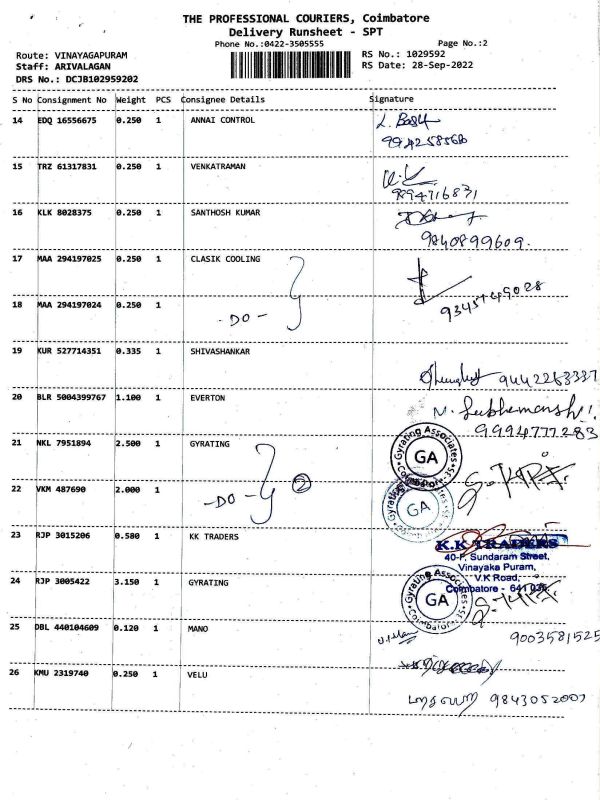 THE PROFESSIONAL COURIERS, Coimbatore
Delivery Runsheet - SPT
Phone No.:0422-3505555 Page No.:2
Route: VINAYAGAPURAM RS No.: 1029592
Staff: ARIVALAGAN RS Date: 28-Sep-2022
DRS No.: DCJB102959202
S No Consignment No Weight PCS Consignee Details Signature
14 EDQ 16556675 0.250 1 ANNAI CONTROL
15 TRZ 61317831 0.250 1 VENKATRAMAN
9894716831
16 KLK 8028375 0.250 1 SANTHOSH KUMAR
9840899609.
17 MAA 294197025 0.250 1 CLASIK COOLING
18 MAA 294197024 0.250 1
- DO -
19 KUR 527714351 0.335 1 SHIVASHANKAR
9442263337
20 BLR 5004399767 1.100 1 EVERTON
9994777283
21 NKL 7951894 2.500 1 GYRATING
Gyrating Associates
GA
Coimbatore-35
22 VKM 487690 2.000 1
-DO- 2
GA
23 RJP 3015206 0.580 1 KK TRADERS
K.K TRADERS
40-F, Sundaram Street,
Vinayaka Puram,
V.K Road,
Coimbatore - 641 035
24 RJP 3005422 3.150 1 GYRATING
Gyrating Associates
GA
Coimbatore-35
25 DBL 440104609 0.120 1 MANO
9003581525
26 KMU 2319740 0.250 1 VELU
9843052007